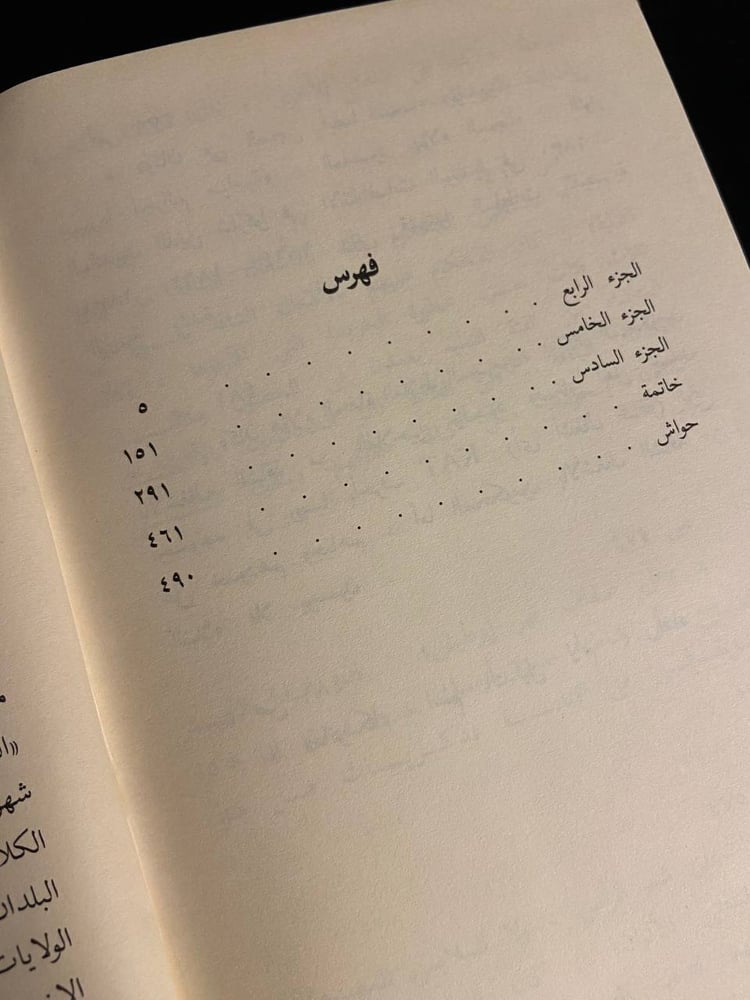 فهرس
الجزء الرابع . . . . . . . . . ٥
الجزء الخامس . . . . . . . . . ١٥١
الجزء السادس . . . . . . . . . ٢٩١
خاتمة . . . . . . . . . . ٤٦١
حواش . . . . . . . . . . ٤٩٠
البلدان
الولايات